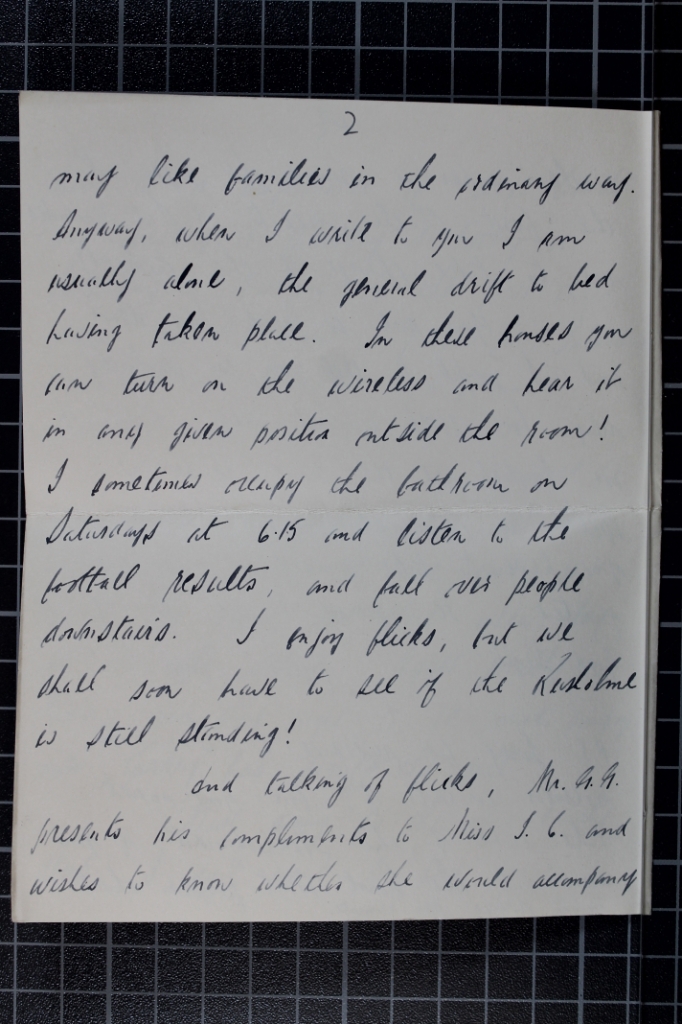 2
may like families in the ordinary way.
Anyway, when I write to you I am
usually alone, the general drift to bed
having taken place. In these houses you
can turn on the wireless and hear it
in any given position outside the room!
I sometimes occupy the bathroom on
Saturdays at 6.15 and listen to the
football results, and fall over people
downstairs. I enjoy flicks, but we
shall soon have to see if the Rusholme
is still standing!
And talking of flicks, Mr. G.G.
presents his compliments to Miss I. C. and
wishes to know whether she would accompany